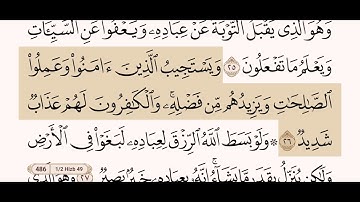 وَهُوَ ٱلَّذِى يَقْبَلُ ٱلتَّوْبَةَ عَنْ عِبَادِهِۦ وَيَعْفُوا۟ عَنِ ٱلسَّيِّـَٔاتِ
وَيَعْلَمُ مَا تَفْعَلُونَ ٢٥ وَيَسْتَجِيبُ ٱلَّذِينَ ءَامَنُوا۟ وَعَمِلُوا۟
ٱلصَّـٰلِحَـٰتِ وَيَزِيدُهُم مِّن فَضْلِهِۦ ۚ وَٱلْكَـٰفِرُونَ لَهُمْ عَذَابٌ
شَدِيدٌ ٢٦ ۞ وَلَوْ بَسَطَ ٱللَّهُ ٱلرِّزْقَ لِعِبَادِهِۦ لَبَغَوْا۟ فِى ٱلْأَرْضِ
486 1/2 Hizb 49
وَلَـٰكِن يُنَزِّلُ بِقَدَرٍ مَّا يَشَآءُ ۚ إِنَّهُۥ بِعِبَادِهِۦ خَبِيرٌۢ بَصِيرٌ ٢٧ وَهُوَ ٱلَّذِى